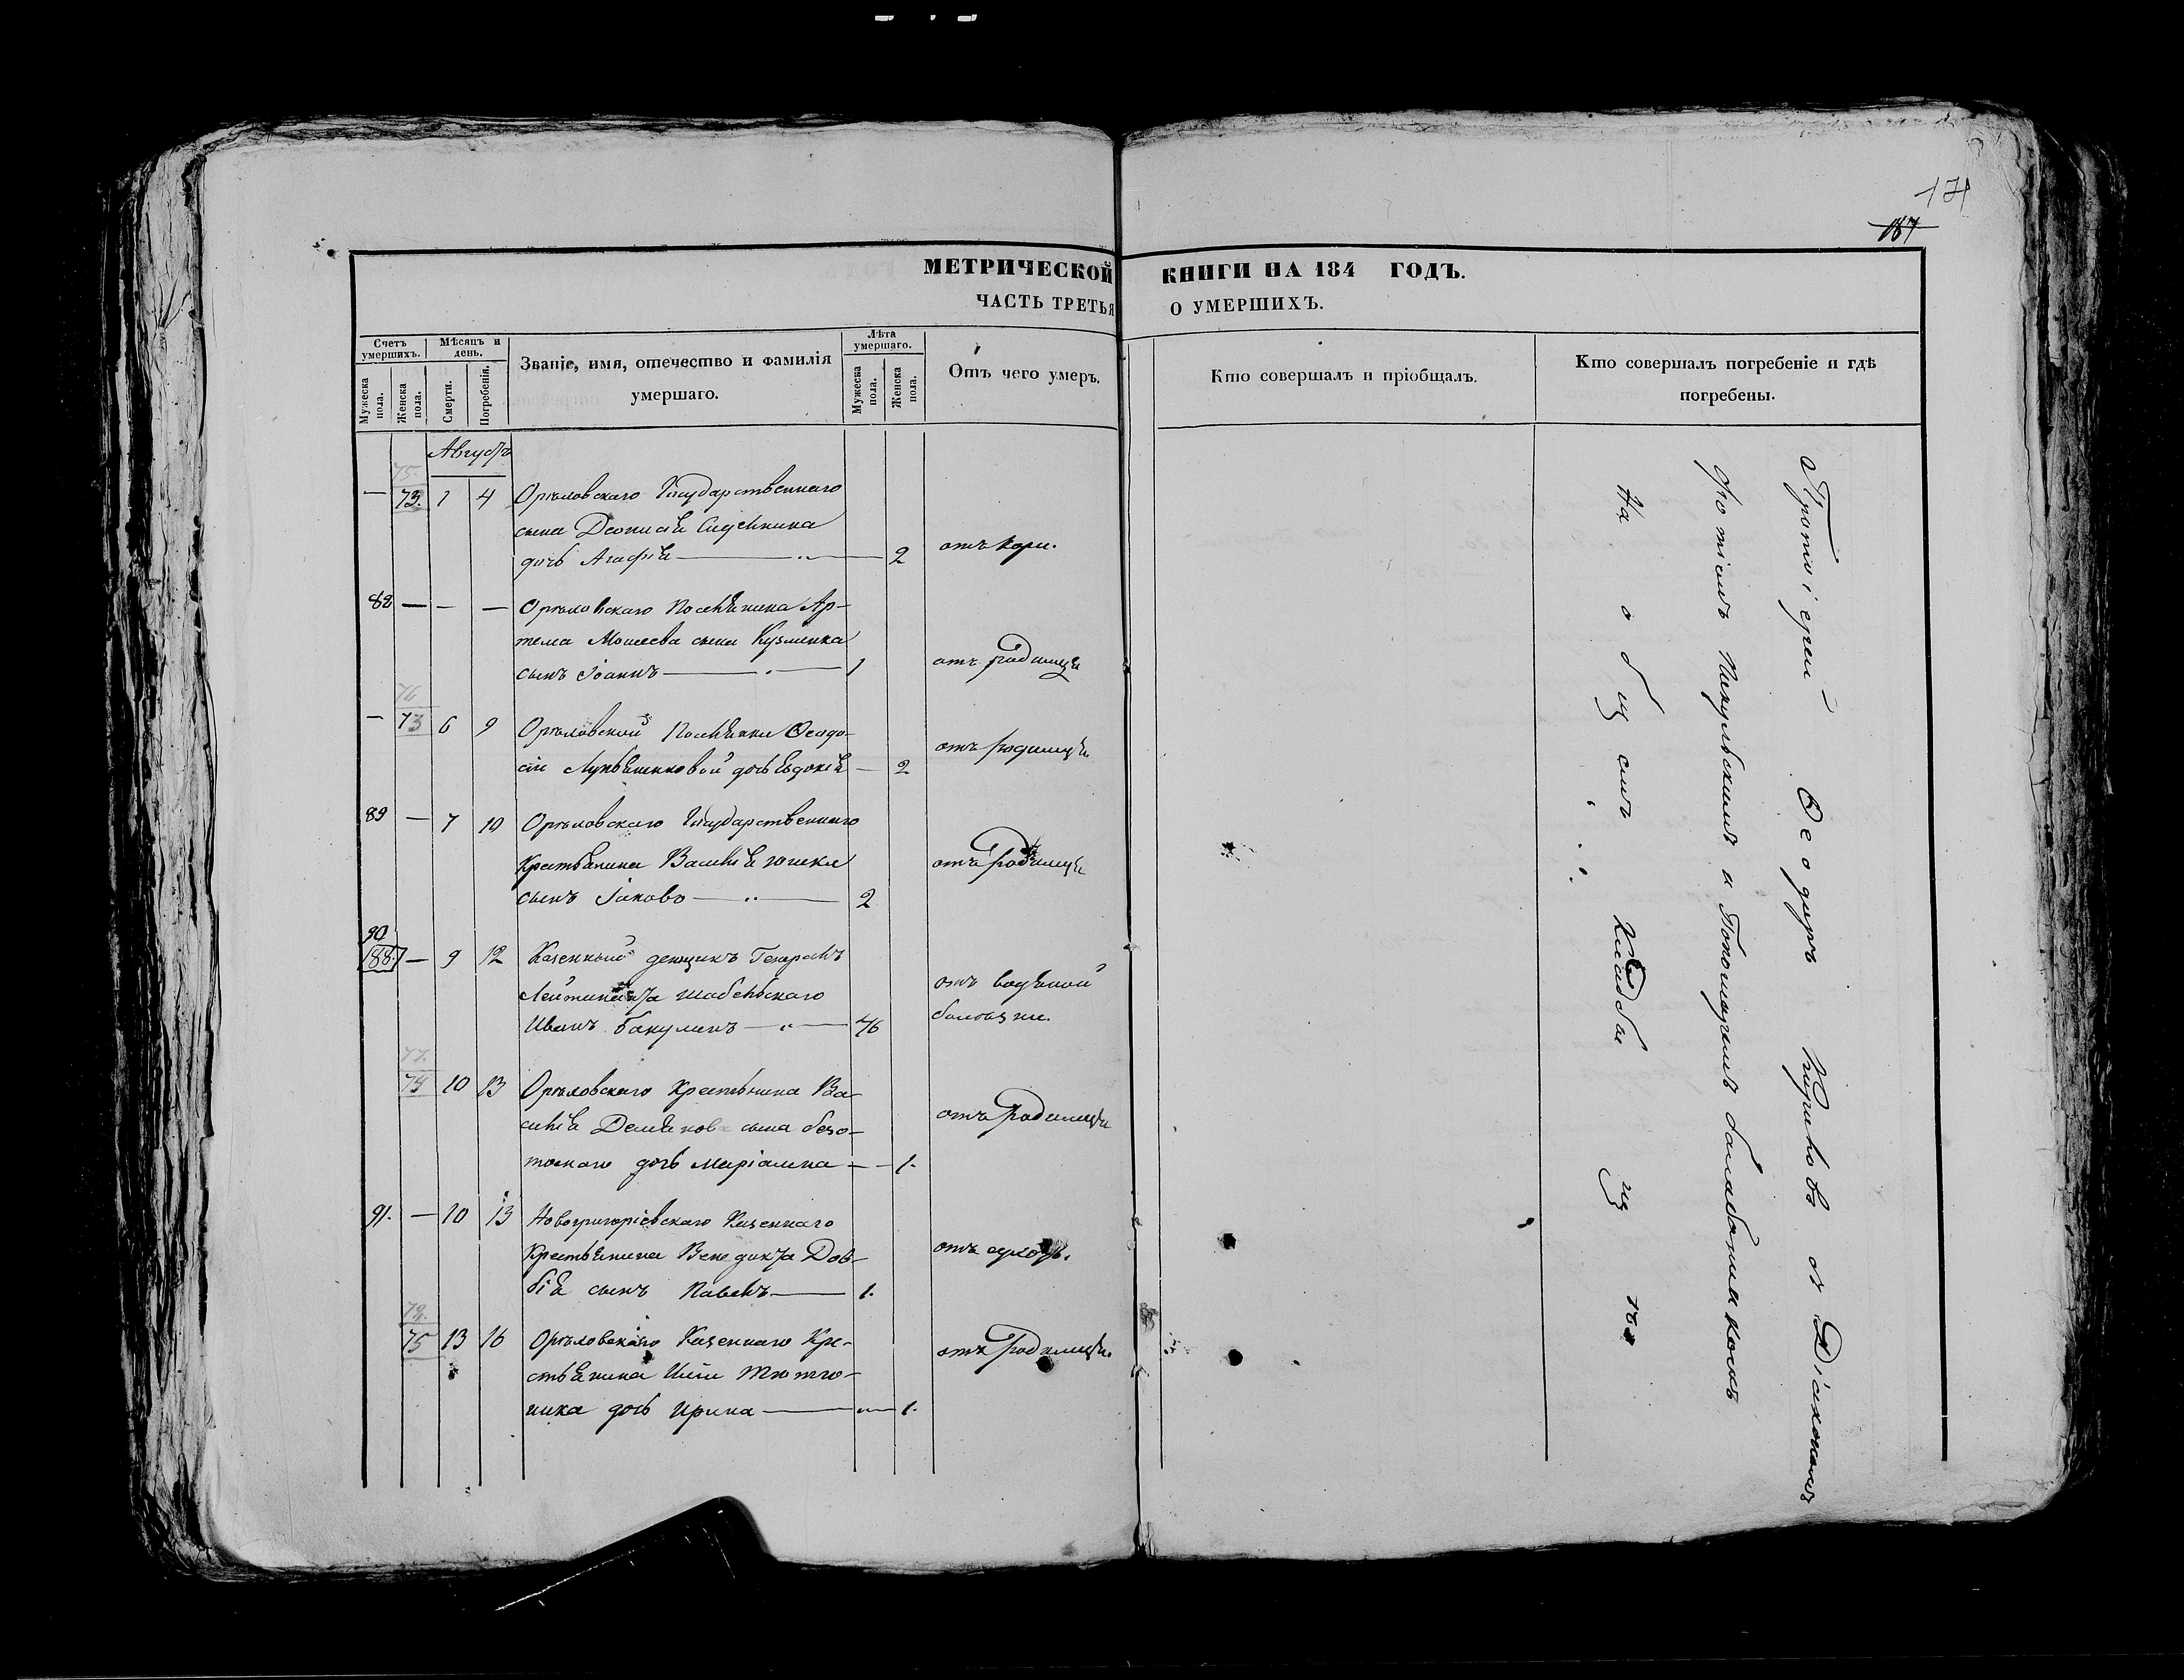 171
187
МЕТРИЧЕСКОЙ КНИГИ НА 184 ГОДЪ.
ЧАСТЬ ТРЕТЬЯ О УМЕРШИХЪ.
Счетъ умершихъ.
Мужеска пола.
Женска пола.
Мѣсяцъ и день.
Смерти.
Погребенія.
Званіе, имя, отечество и фамилія
умершаго.
Лѣта умершаго.
Мужеска пола.
Женска пола.
Отъ чего умеръ.
Кто совершалъ и пріобщалъ.
Кто совершалъ погребеніе и гдѣ
погребены.
Августъ
75.
— 73. 1 4 Орѣловскаго Государственнаго
сына
дочь Агафія — 2 отъ кори.
88 — — — Орѣловскаго Поселянина Ар-
тема Моисеева сына Кузменка
сынъ Іоаннъ — 1 отъ родимца
76
— 73 6 9 Орѣловской Поселянки Ѳеодо-
сіи дочь Евдокія — 2 отъ родимца
89 — 7 10 Орѣловскаго Государственнаго
Крестьянина Василія
сынъ Іаковъ — 2 отъ родимца
90
88. — 9 12 Казенный денщикъ Генералъ
Лейтинанта Шабельскаго
Иванъ Бакулинъ — 76 отъ водяной
болѣзни.
77.
74 10 13 Орѣловскаго Крестьянина Ва-
силія сына
дочь Маріамна — 1. отъ родимца
91. — 10 13 Новогригоріевскаго Казеннаго
Крестьянина Венедикта Дов-
бія сынъ Павелъ — 1.
78.
75 13 16 Орѣловскаго Казеннаго Кре-
стьянина Иліи Тютю-
ника дочь Ирина — 1. отъ родимца.
Протоіерей Ѳеодоръ съ Діакономъ
Фотіемъ Пикульскимъ и
На общемъ Кладбищѣ